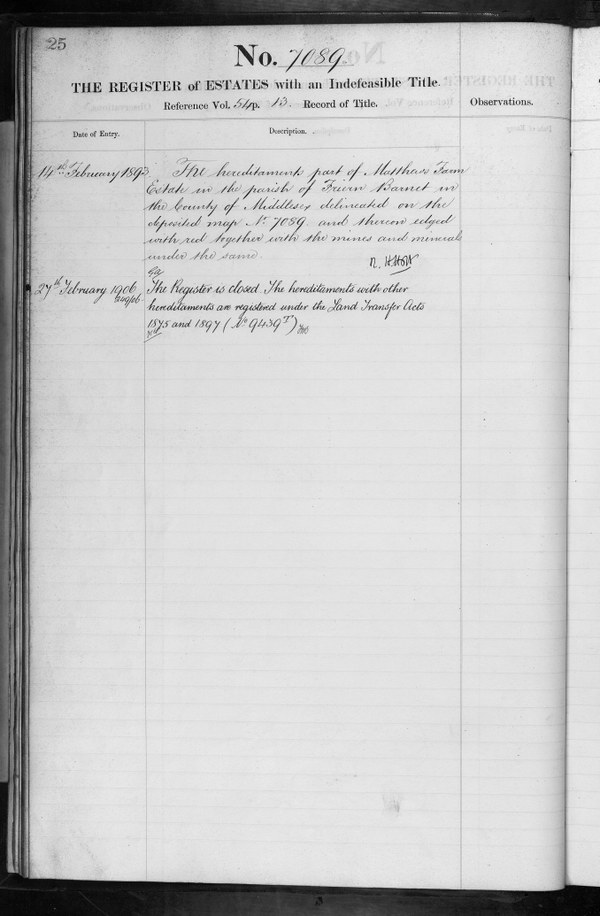 25
No. 7089.
THE REGISTER of ESTATES with an Indefeasible Title.
Reference Vol. 54 p. 13. Record of Title.
Observations.
Date of Entry.
Description.
14th February 1893.
The hereditaments part of Matthews Farm
Estate in the parish of Friern Barnet in
the County of Middlesex delineated on the
deposited map No. 7089 and thereon edged
with red together with the mines and minerals
under the same.
27th February 1906
The Register is closed. The hereditaments with other
hereditaments are registered under the Land Transfer Acts
1875 and 1897 (No 9439T)